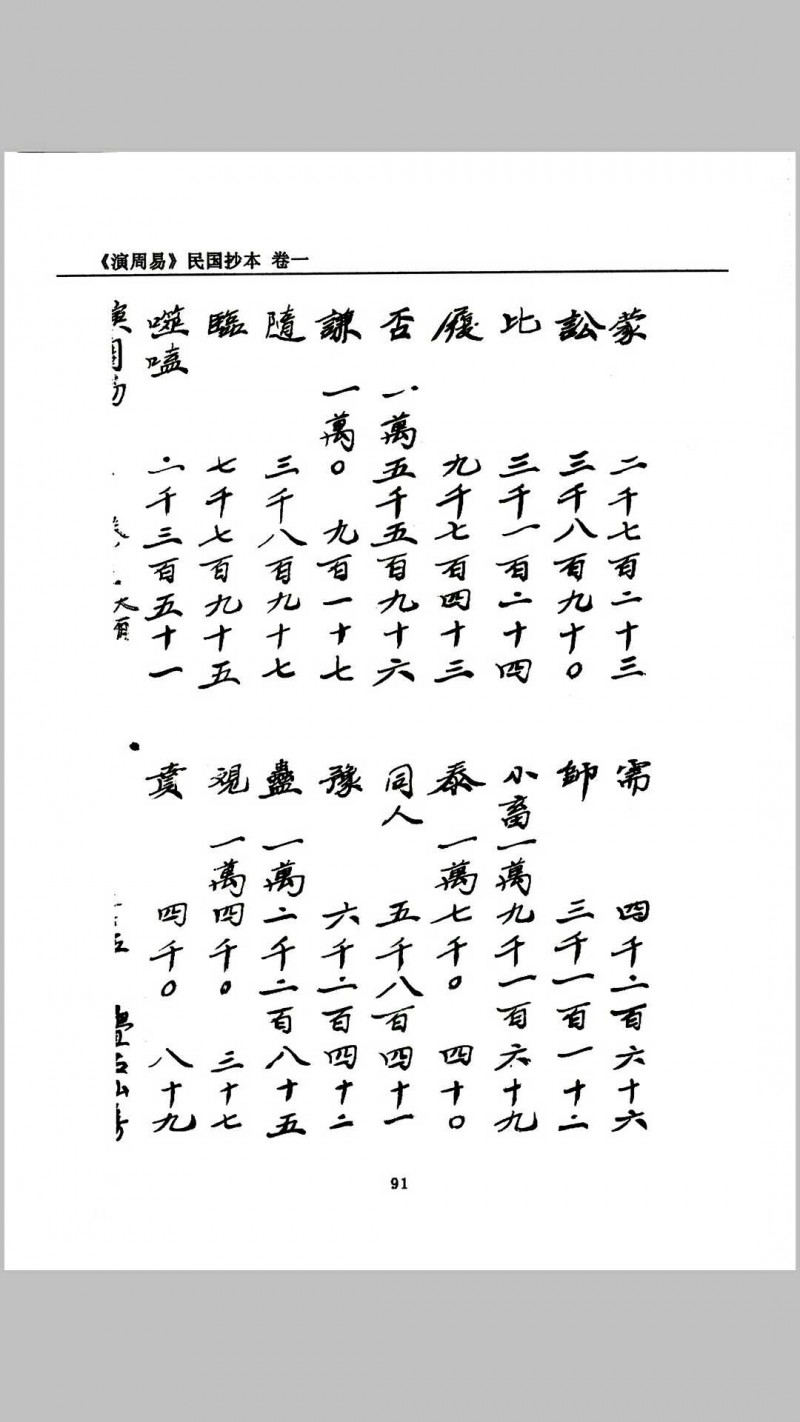 《演周易》民国抄本 卷一
蒙 二千七百二十三 需 四千二百六十六
訟 三千八百九十0 師 三千一百一十二
比 三千一百二十四 小畜 一萬九千一百六十九
履 九千七百四十三 泰 一萬七千0四十0
否 一萬五千五百九十六 同人 五千八百四十一
謙 一萬0九百一十七 豫 六千二百四十二
隨 三千八百九十七 蠱 一萬二千二百八十五
臨 七千七百九十五 覌 一萬四千0三十七
噬嗑 二千三百五十一 賁 四千0八十九
演周易 大有
91